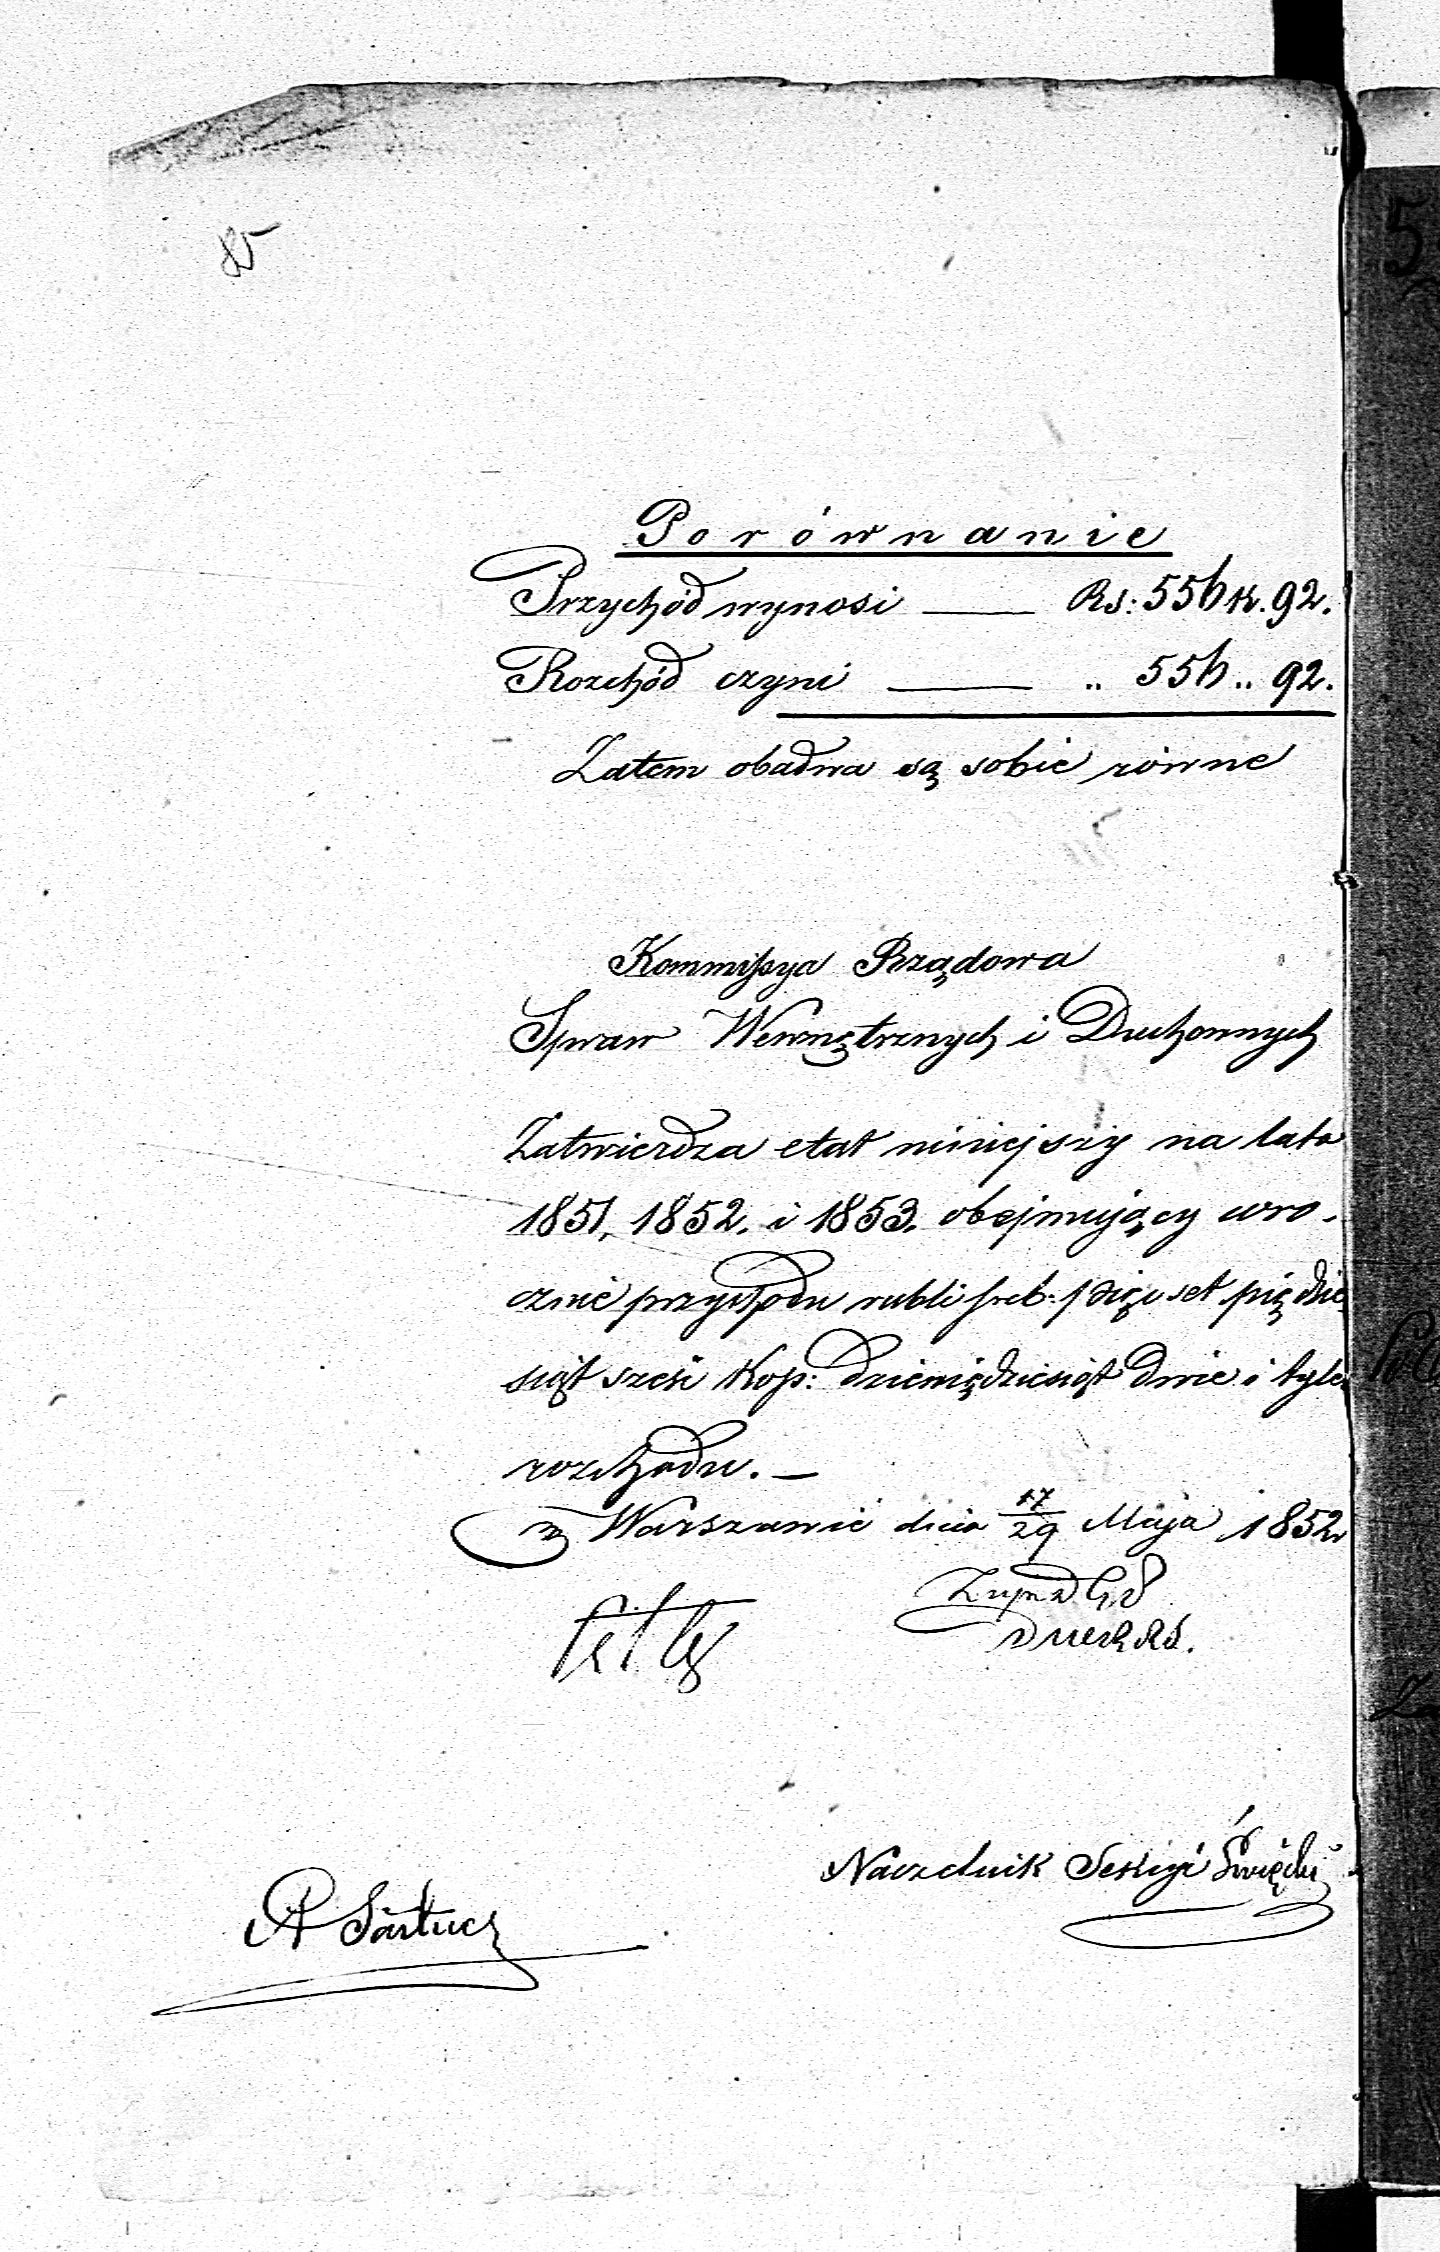 Porównanie
Przychód wynosi — Rs: 556 k. 92.
Rozchód czyni — „ 556 „ 92.
Zatem obadwa są sobie równe
Kommissya Rządowa
Spraw Wewnętrznych i Duchownych
Zatwierdza etat niniejszy na lata
1851, 1852. i 1853. obejmujący wro-
cznie przychodu rubli sreb: pięćset pięćdzie
siąt sześć kop: dziewięćdziesiąt dwie i tyleż
rozchodu. —
w Warszawie dnia 17/29 Maja 1852
Naczelnik Sekcyi Święcki